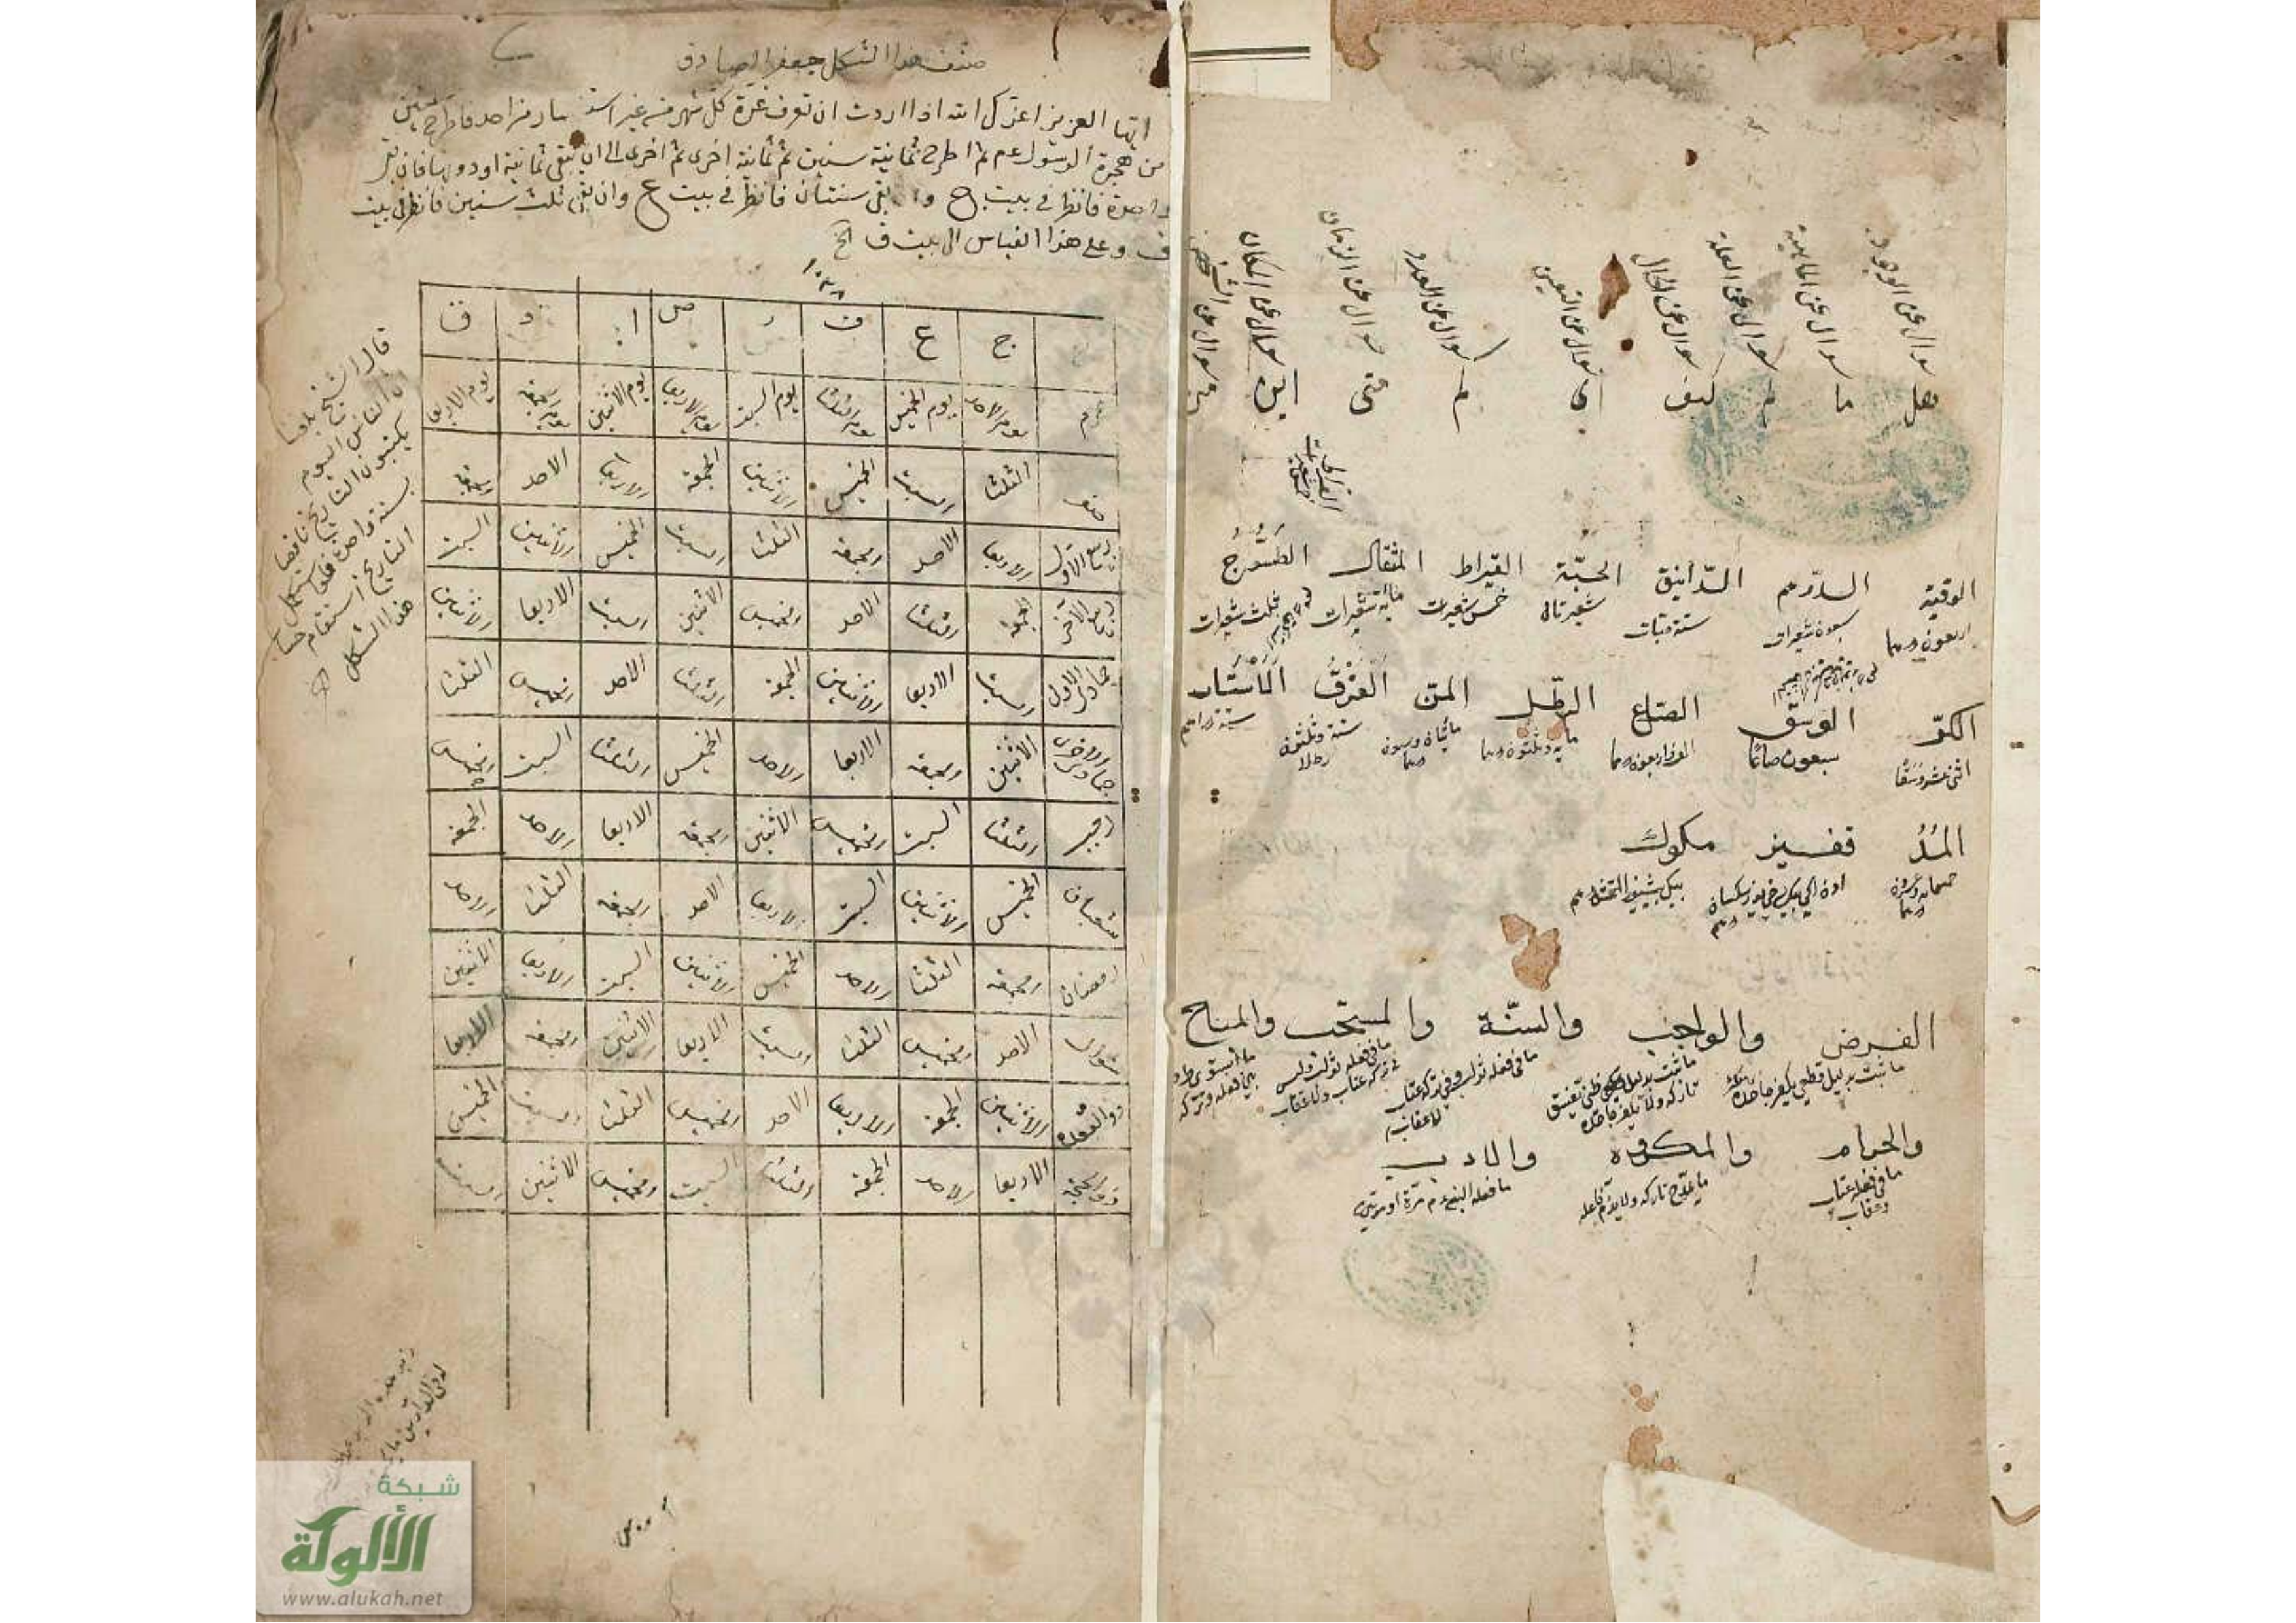 سوال عن الوجود سوال عن الماهية سوال عن العلة سوال عن الحال سوال عن التعيين سوال عن العدد سوال عن الزمان سوال عن المكان سوال عن الشخص
هل ما لم كيف اى كم متى اين من
الوقية الدرهم الدانق الحبّة القيراط المثقال الطسّوج
اربعون درهما سبعون شعيرات ستة حبّات شعيرتان خمس شعيرات مائة شعيرات ثلث شعيرات
الكرّ الوسق الصاع الرطل المنّ الفرق الاستار
اثنى عشر وسقا سبعون صاعًا الف واربعون درهما مايه وثلثون درهما مائتان وستون درهما ستة وثلثون رطلا ستة دراهم
المُدّ قفيز مكوك
الفرض والواجب والسنّة والمستحب والمباح
ما ثبت بدليل قطعى يكفر جاحده
ما ثبت بدليل ظنى تفسق تاركه ولا يكفر جاحده
ما فى فعله ثواب وفى تركه عتاب لا عقاب
ما فى فعله ثواب وليس فى تركه عتاب ولا عقاب
ما استوى طرفا بين فعله وتركه
والحرام والمكروه والادب
ما فى فعله عتاب وعقاب
ما يمدح تاركه ولا يذم فاعله
ما فعله النبى عم مرّة او مرتين
صنف هذا الشكل جعفر الصادق
ايّها العزيز اعزّك الله اذا اردت ان تعرف غرّة كلّ شهر من غير استفسار من احد فاطرح سنين
من هجرة الرسول عم ثم اطرح ثمانية سنين ثم ثمانية اخرى ثم اخرى الى ان يبقى ثمانية او دونها فان بقى
واحدة فانظر فى بيت ج وان بقى سنتان فانظر فى بيت ع وان بقى ثلث سنين فانظر فى بيت
ف وعلى هذا القياس الى بيت ق الخ
١٠٣٨
ج ع ف ر ص ا د ق
محرم يوم الاحد يوم الخميس يوم الثلثا يوم السبت يوم الاربعا يوم الاثنين يوم الجمعة يوم الاربعا
صفر الثلثا السبت الخميس الاثنين الجمعة الاربعا الاحد الجمعة
ربيع الاول الاربعا الاحد الجمعة الثلثا السبت الخميس الاثنين السبت
ربيع الآخر الجمعة الثلثا الاحد الخميس الاثنين السبت الاربعا الاثنين
جمادى الاول السبت الاربعا الاثنين الجمعة الثلثا الاحد الخميس الثلثا
جمادى الاخرى الاثنين الجمعة الاربعا الاحد الخميس الثلثا السبت الخميس
رجب الثلثا السبت الخميس الاثنين الجمعة الاربعا الاحد الجمعة
شعبان الخميس الاثنين السبت الاربعا الاحد الجمعة الثلثا الاحد
رمضان الجمعة الثلثا الاحد الخميس الاثنين السبت الاربعا الاثنين
شوال الاحد الخميس الثلثا السبت الاربعا الاثنين الجمعة الاربعا
ذو القعدة الاثنين الجمعة الاربعا الاحد الخميس الثلثا السبت الخميس
ذو الحجة الاربعا الاحد الجمعة الثلثا السبت الخميس الاثنين السبت
قال الشيخ بلغنا
ان الناس اليوم
يكتبون التاريخ ناقصا
بسنة واحدة فلو استكمل
التاريخ استقام حساب
هذا الشكل
شبكة
الألوكة
www.alukah.net